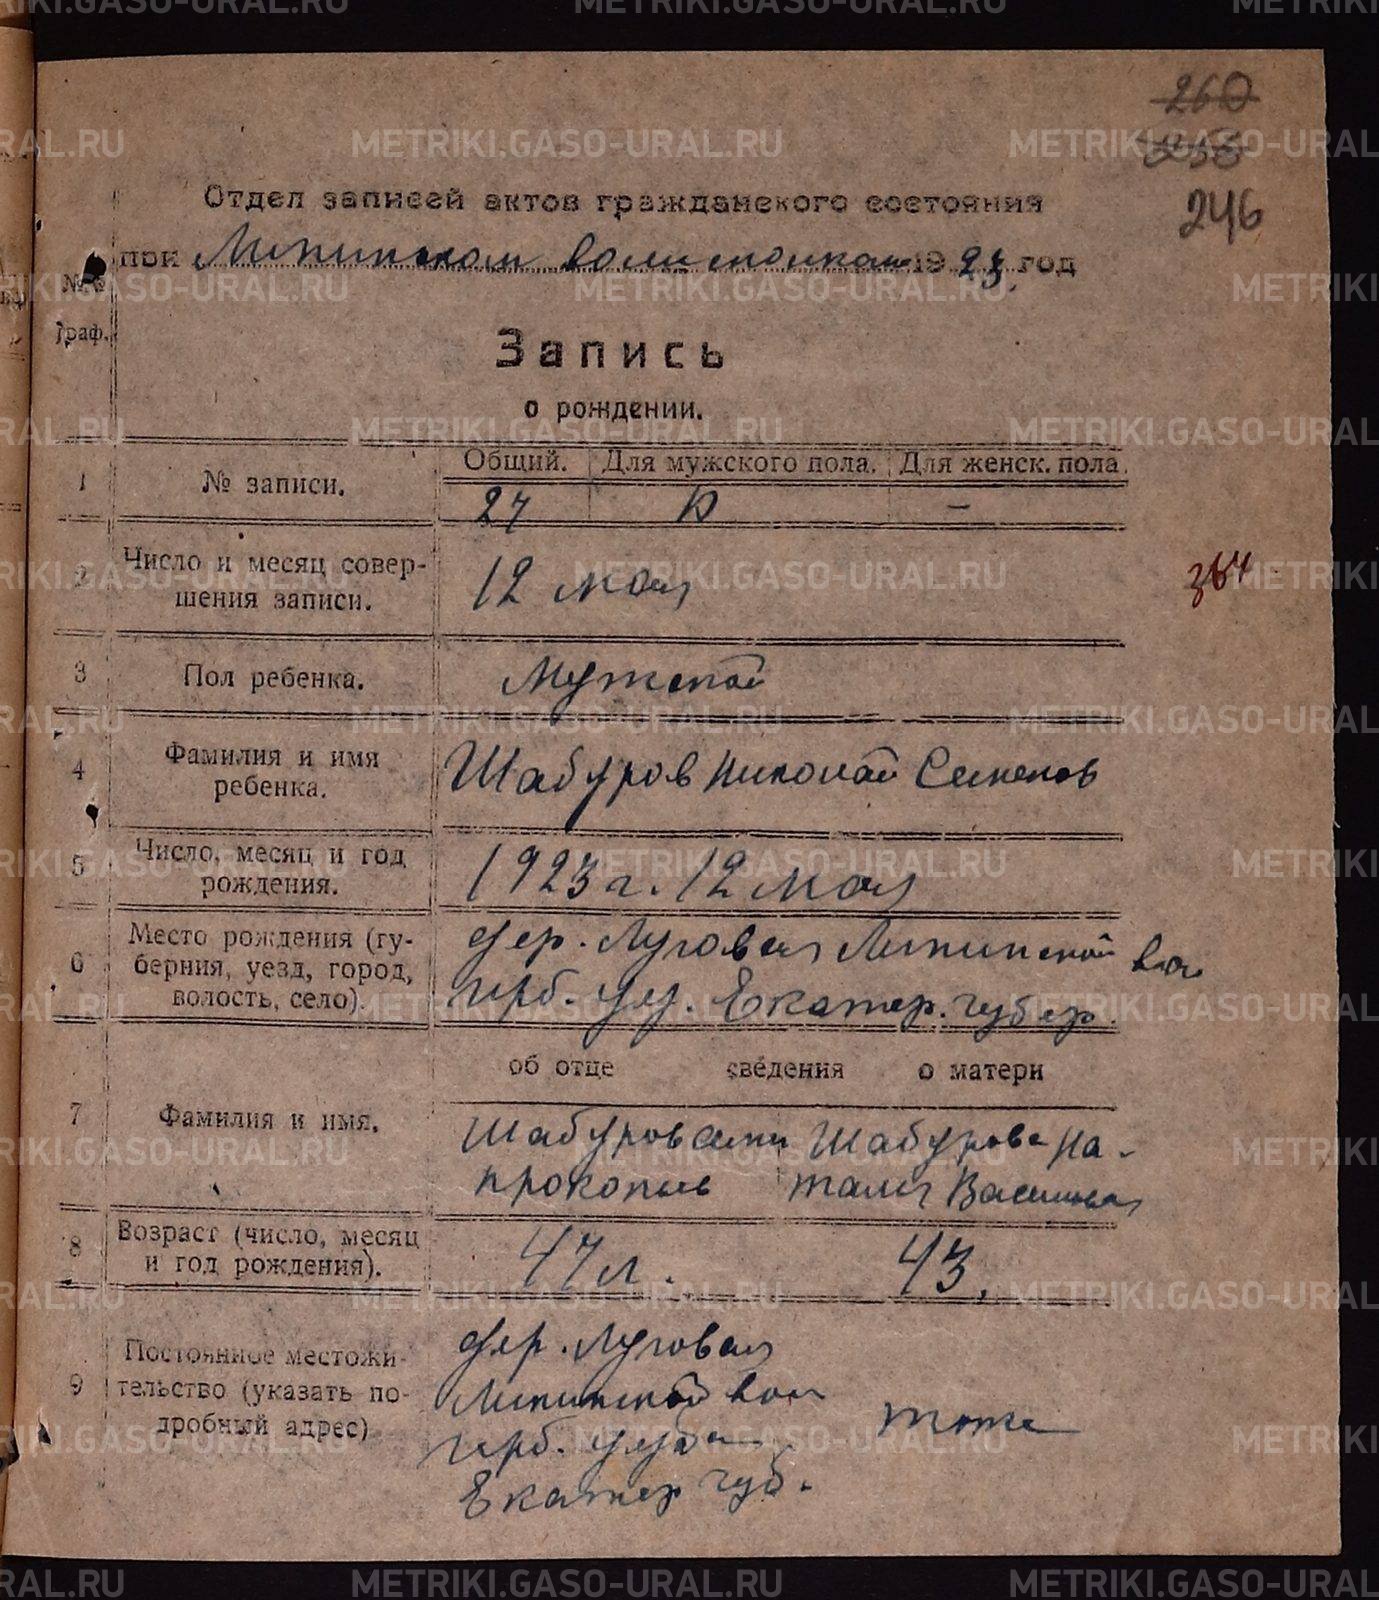 260
246
Отдел записей актов гражданского состояния
при Липинском волисполкоме 1923 год
№№
граф.
Запись
о рождении.
Общий. Для мужского пола. Для женск. пола.
1 № записи. 27 -
2 Число и месяц совер-
шения записи. 12 мая
364
3 Пол ребенка. Мужской
4 Фамилия и имя
ребенка. Шабуров Николай Семенов
5 Число, месяц и год
рождения. 1923 г. 12 мая
6 Место рождения (гу-
берния, уезд, город,
волость, село). дер. Луговая Липинской вол
ирб. уез. Екатер. губер.
об отце сведения о матери
7 Фамилия и имя. Шабуров Семен
Прокопьев
Шабурова На-
талья Васильев
8 Возраст (число, месяц
и год рождения). 47 л. 43.
9 Постоянное местожи-
тельство (указать по-
дробный адрес)
дер. Луговая
Липинской вол
ирб. уезда
Екатер губ.
тоже
METRIKI.GASO-URAL.RU